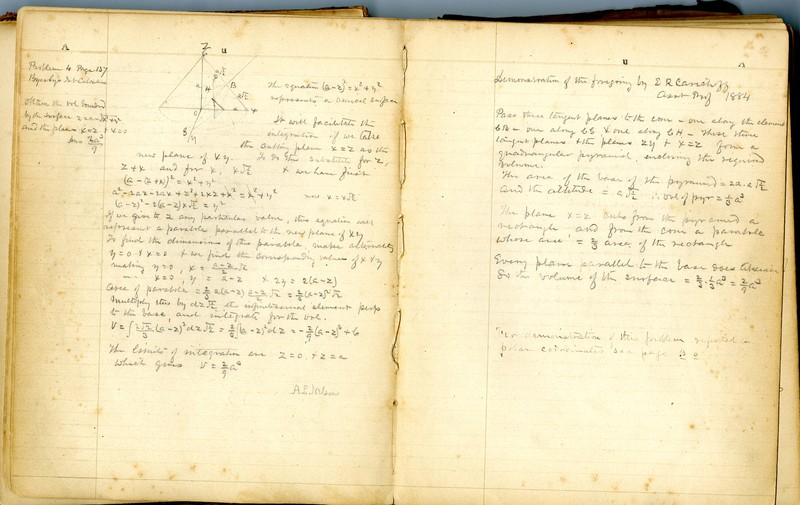 A
u
Problem 4 Page 137
Byerly's Int Calculus
Obtain the vol bounded
by the surface
and the planes x=z + x=0
Ans 2a³/9
Z
B
H
x
y
The equation (a-z)² = x² + y²
represents a conical surface
It will facilitate the
integration if we take
the cutting plane x=z as the
new plane of XY. To do this substitute for z,
z+x and for x, x√½ + we have first
(a-(z+x))² = x² + y²
a²-2az-2ax+z²+2xz+x² = x²+y² now x = x√½
(a-z)² - 2(a-z)x√½ = y²
If we give to z any particular value, this equation will
represent a parabola parallel to the new plane of XY
To find the dimensions of this parabola, make alternately
y=0 + x=0 + we find the corresponding values of x + y
making y=0, x = (a-z)/2 √2
x=0, y = a-z + 2y = 2(a-z)
Area of parabola = ⅔ 2(a-z) (a-z)/2 √2 = ⅔(a-z)²√2
Multiply this by dz√½ the infinitesimal element perp
to the base, and integrate for the vol.
V = ∫ 2√2/3 (a-z)² dz√½ = ⅔∫(a-z)² dz = -2/9 (a-z)³ + C
The limits of integration are z=0, + z=a
which gives V = 2/9 a³
u
A
Demonstration of the foregoing by
Asst Prof 1884
Pass three tangent planes to the cone - one along the element
one along + one along CH - These three
tangent planes + the planes ZY + X=Z form a
quadrangular pyramid, enclosing the required
volume.
The area of the base of the pyramid = 2a.a√½
and the altitude = a√½ ∴ vol of pyr = ⅓a³
The plane x=z cuts from the pyramid a
rectangle, and from the cone a parabola
whose area = ⅔ area of the rectangle
Every plane parallel to the base does likewise
So the volume of the surface = ⅔.⅓a³ = 2/9 a³
For demonstration of this problem
polar coordinates see page